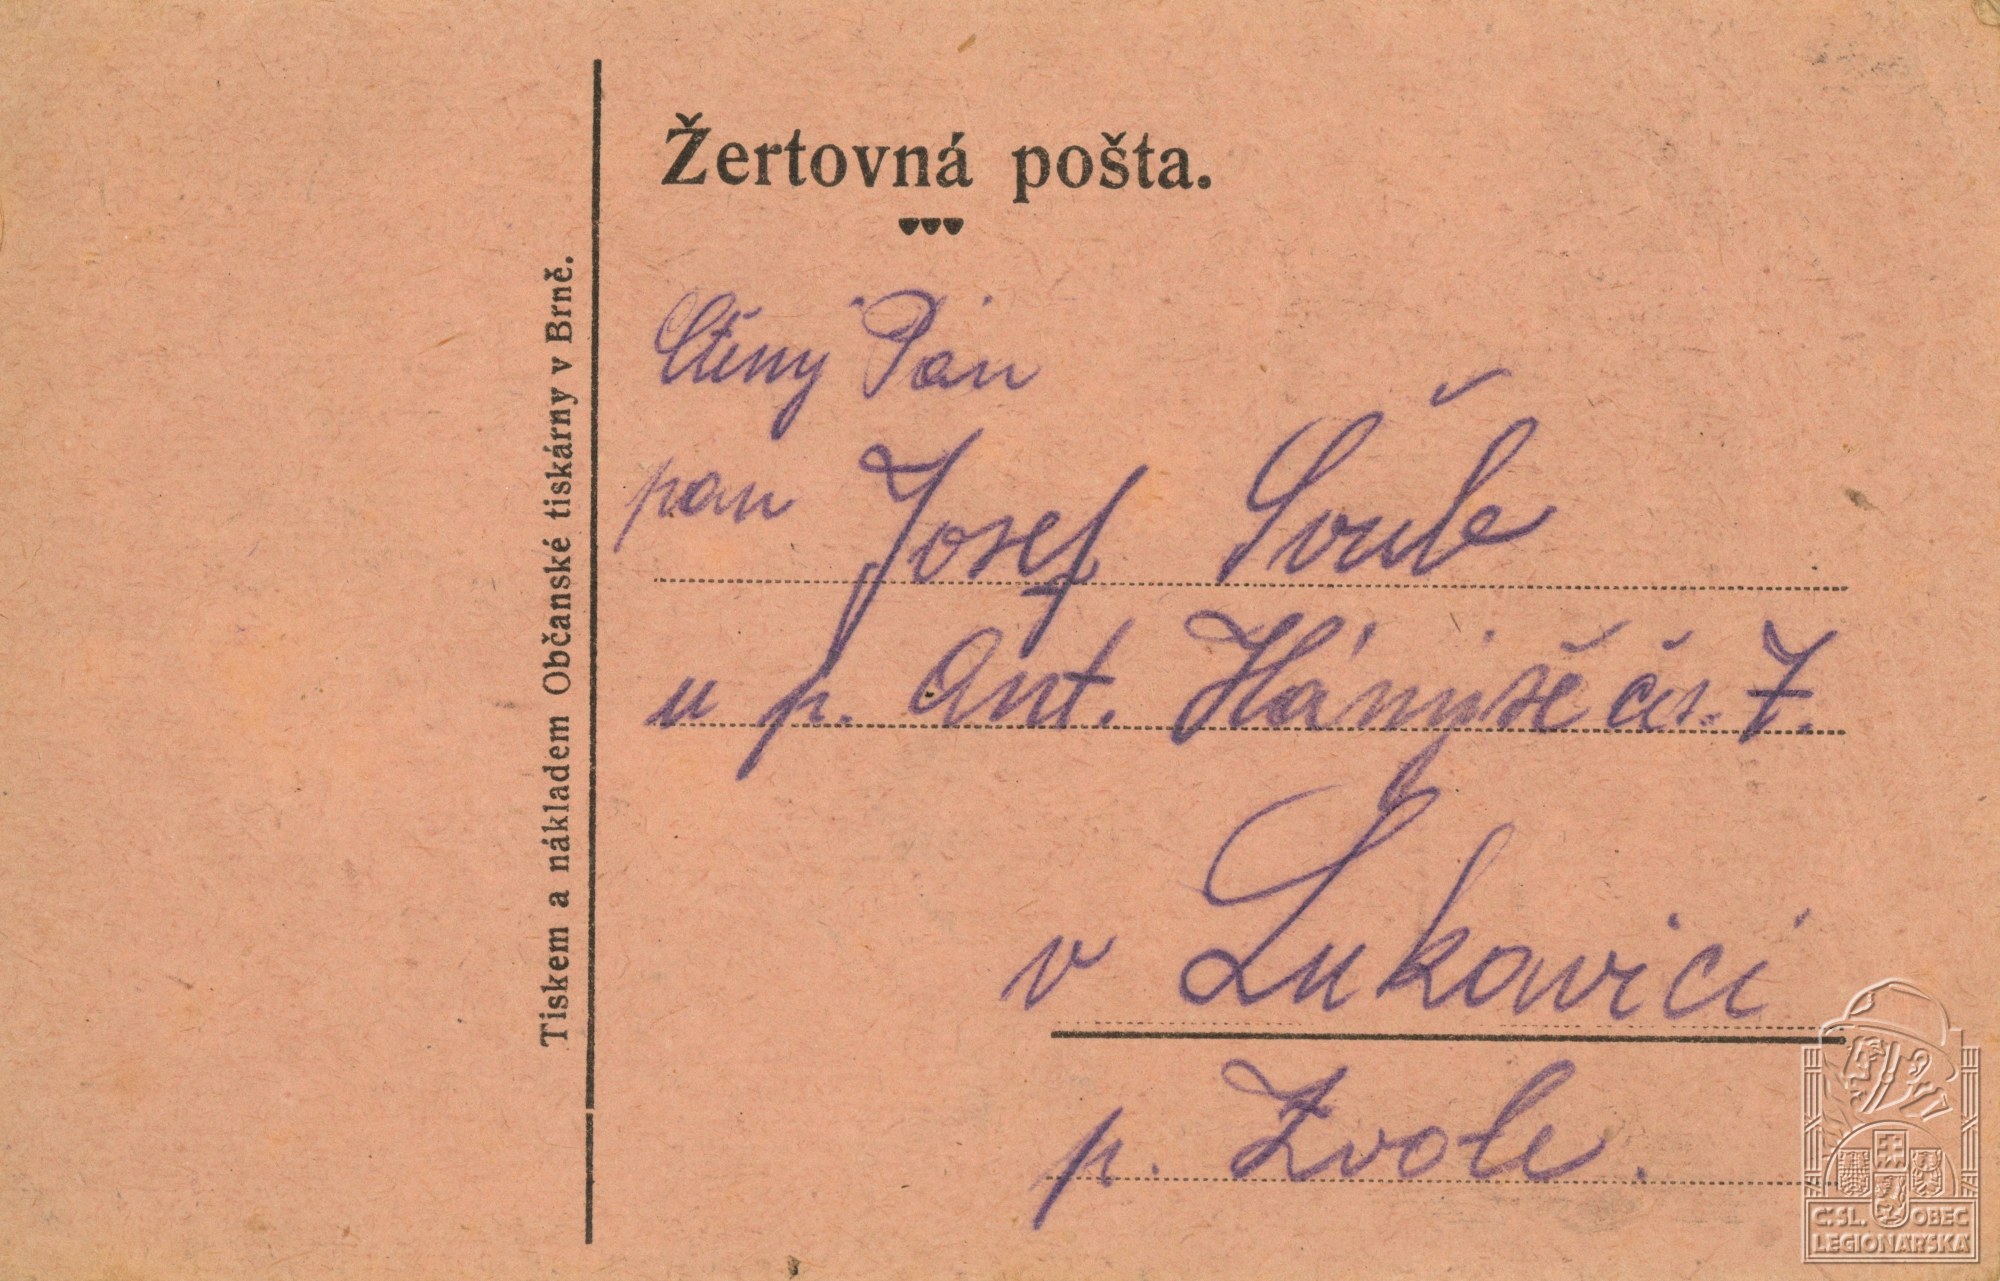 Žertovná pošta.
Tiskem a nákladem Občanské tiskárny v Brně.
Ctěný Pán
pan Josef
u p. Ant. čís. 7.
v Lukavici
p. Zvole.
Č. SL. OBEC
LEGIONÁŘSKÁ